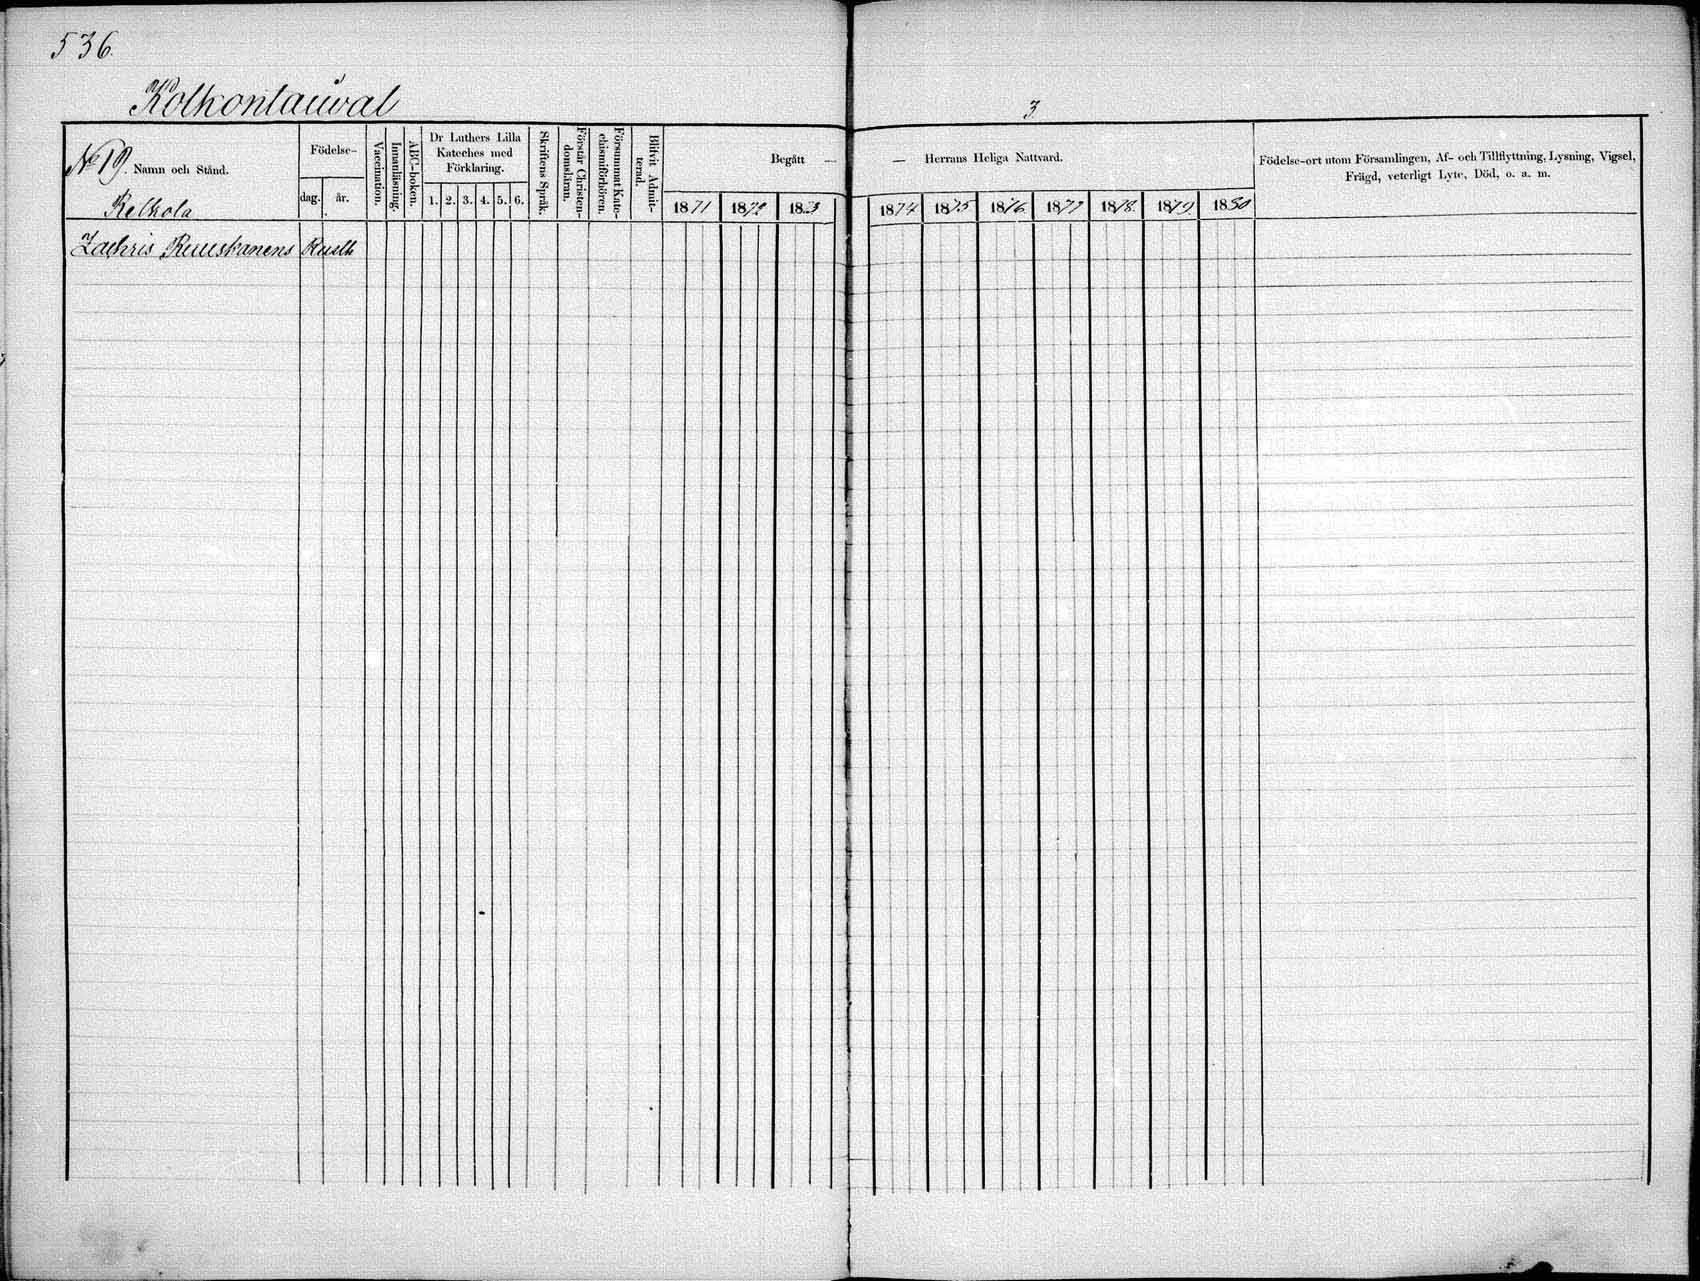 536.
Kolkontaival
3
No 19. Namn och Stånd.
Kelkola
Födelse-
dag. år.
Vaccination.
Innanläsning.
ABC-boken.
Dr Luthers Lilla
Kateches med
Förklaring.
1. 2. 3. 4. 5. 6.
Skriftens Språk.
Förstår Christen-
domsläran.
Försummat Kate-
chismiförhören.
Blifvit Admit-
terad.
Begått —
1871 1872 1873
— Herrans Heliga Nattvard.
1874 1875 1876 1877 1878 1879 1880
Födelse-ort utom Församlingen, Af- och Tillflyttning, Lysning, Vigsel,
Frägd, veterligt Lyte, Död, o. a. m.
Zachris Ruuskanens